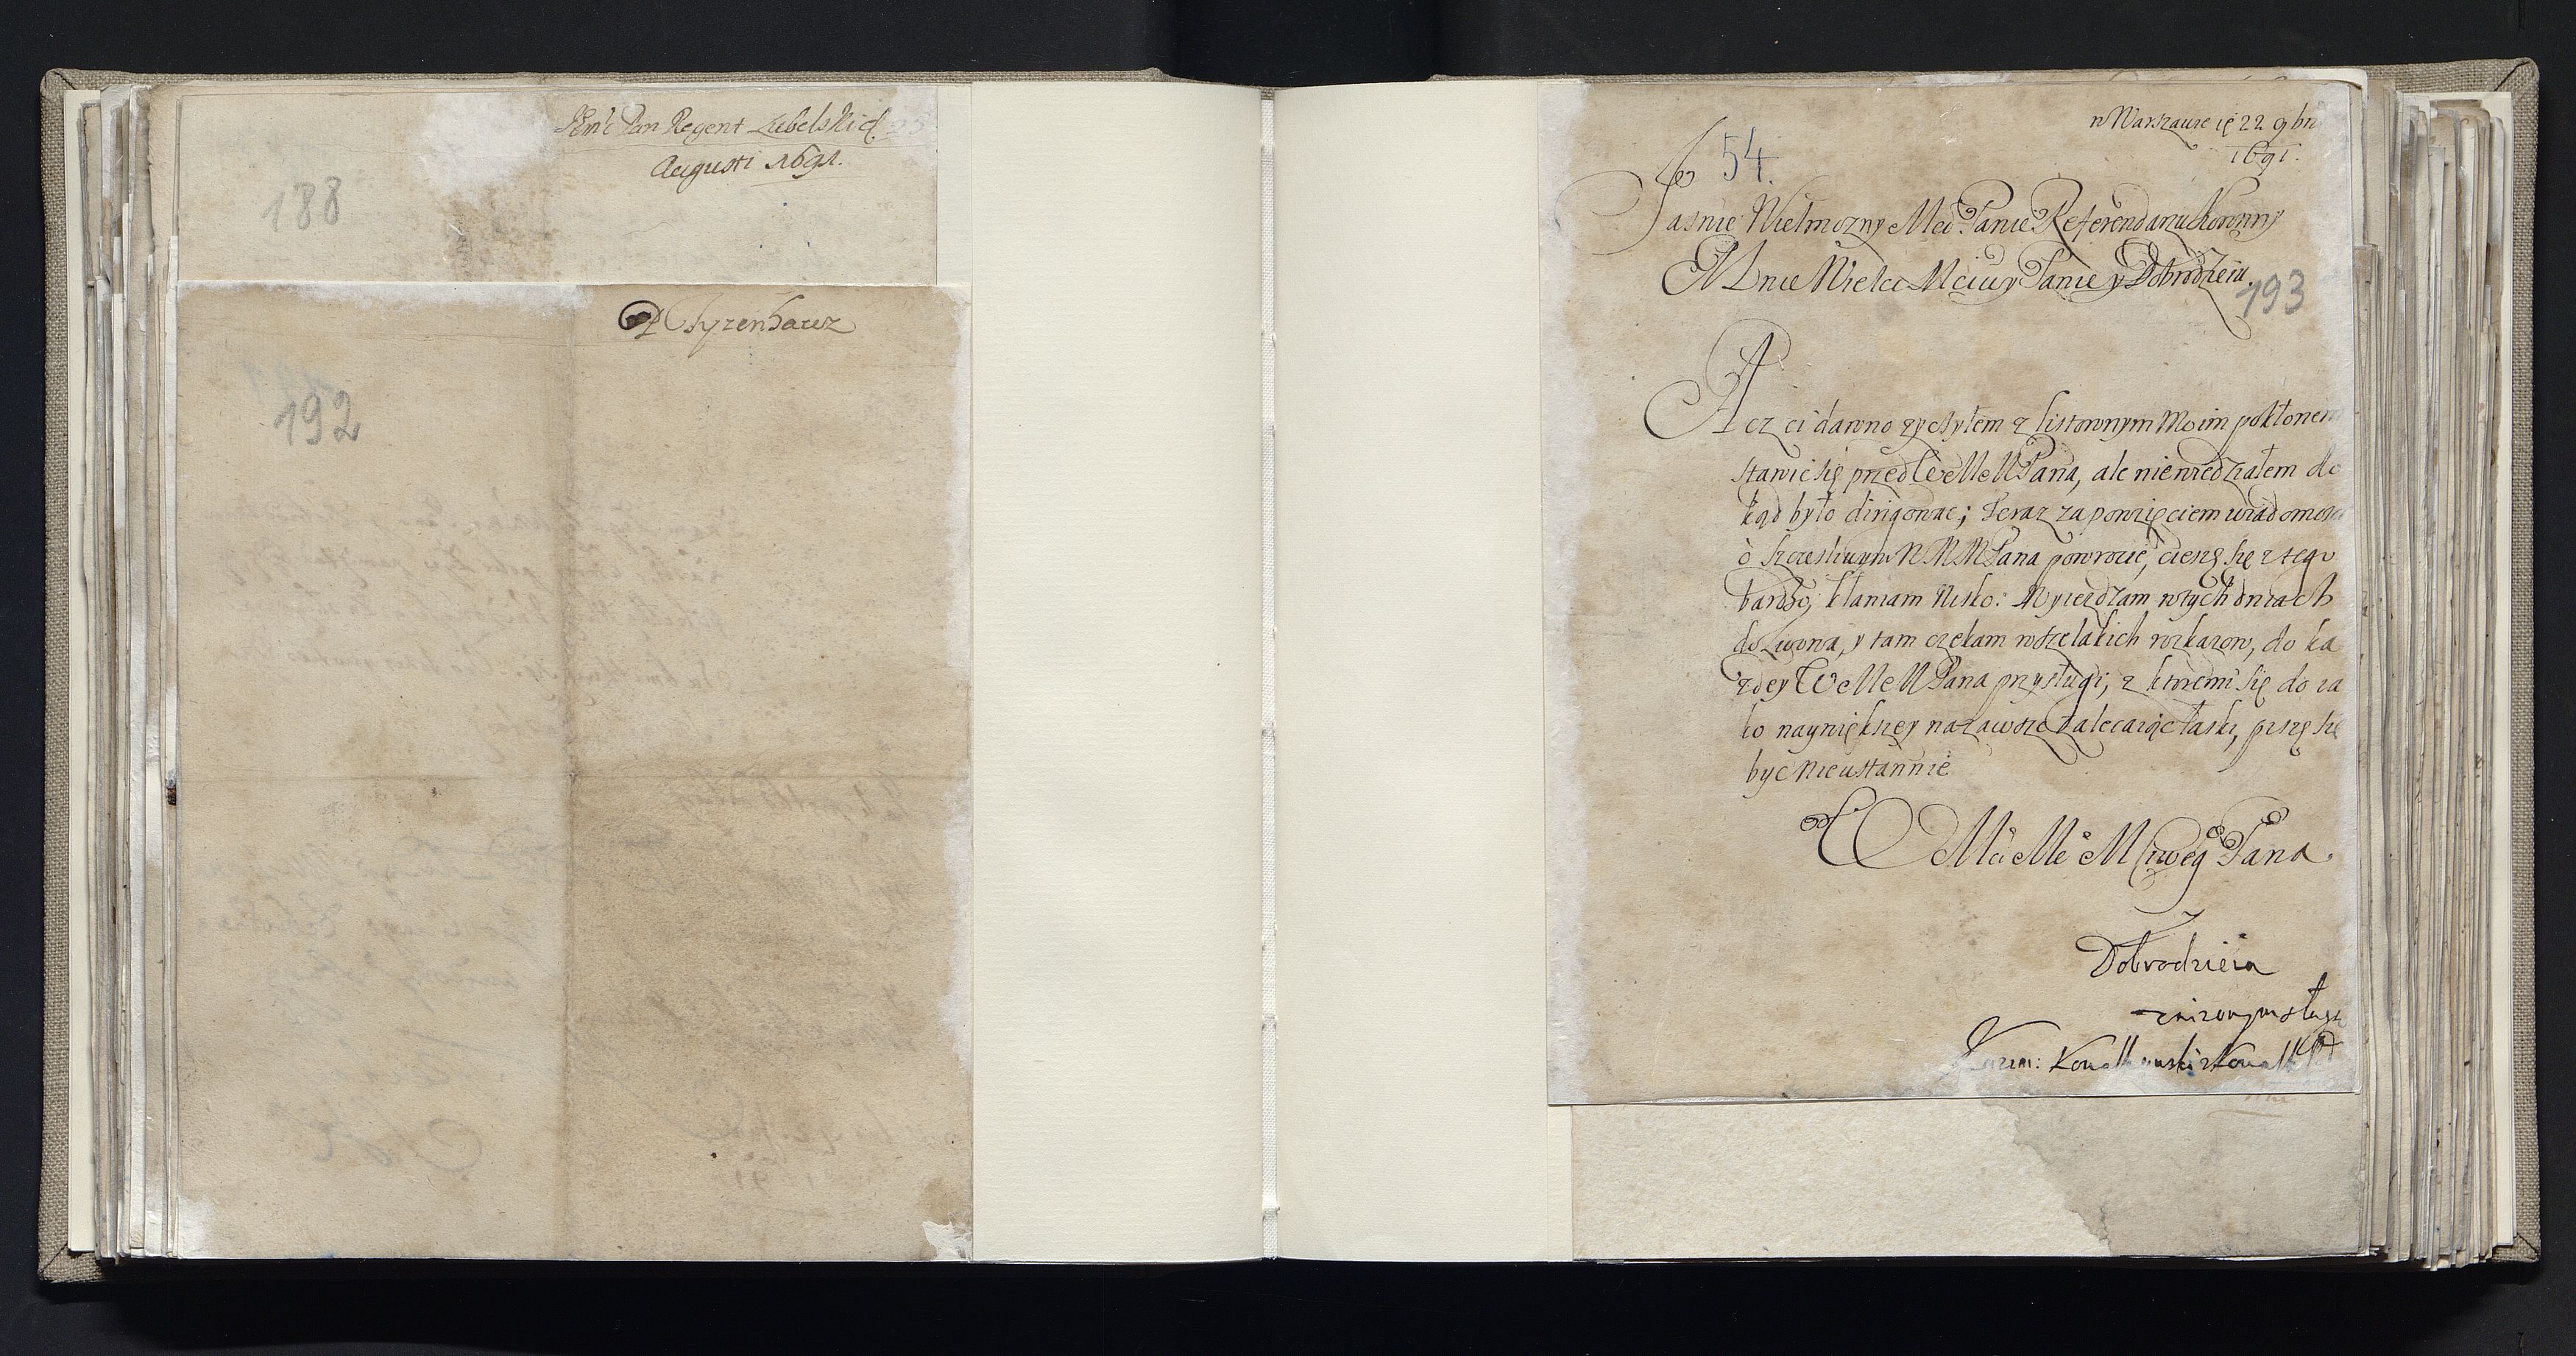 Jem̃c Pan Regent Lubelski d.
Augusti 1691.
188
P Tyzenhauz
192
w Warszawie d 22 9br
1691.
54.
Jasnie Wielmozny Mci Panie Referendarzu Koronny
Mnie Wielce Mciwy Panie y Dobrodzieiu.
193
Acz ci dawno zyczyłem z listownym Moim pokłonem
stawic się przed WMM Pana, ale niewiedziałem do
kąd było dirigowac; Teraz za powzięciem wiadomosci
o szczesliwym WMM Pana powrocie, cieszę się z tego
bardzo, kłaniam nisko: Wyiezdzam w tych dniach
do Lwowa, y tam czekam wszelakich rozkazow, do ka
zdey WMM Pana przysługi, z ktoremi się do ia
ko naywiększey na zawsze zalecaiąc łaski, piszę się
byc nieustannie
WMci Me Mciweg Pana
Dobrodzieia
znizonym sługą